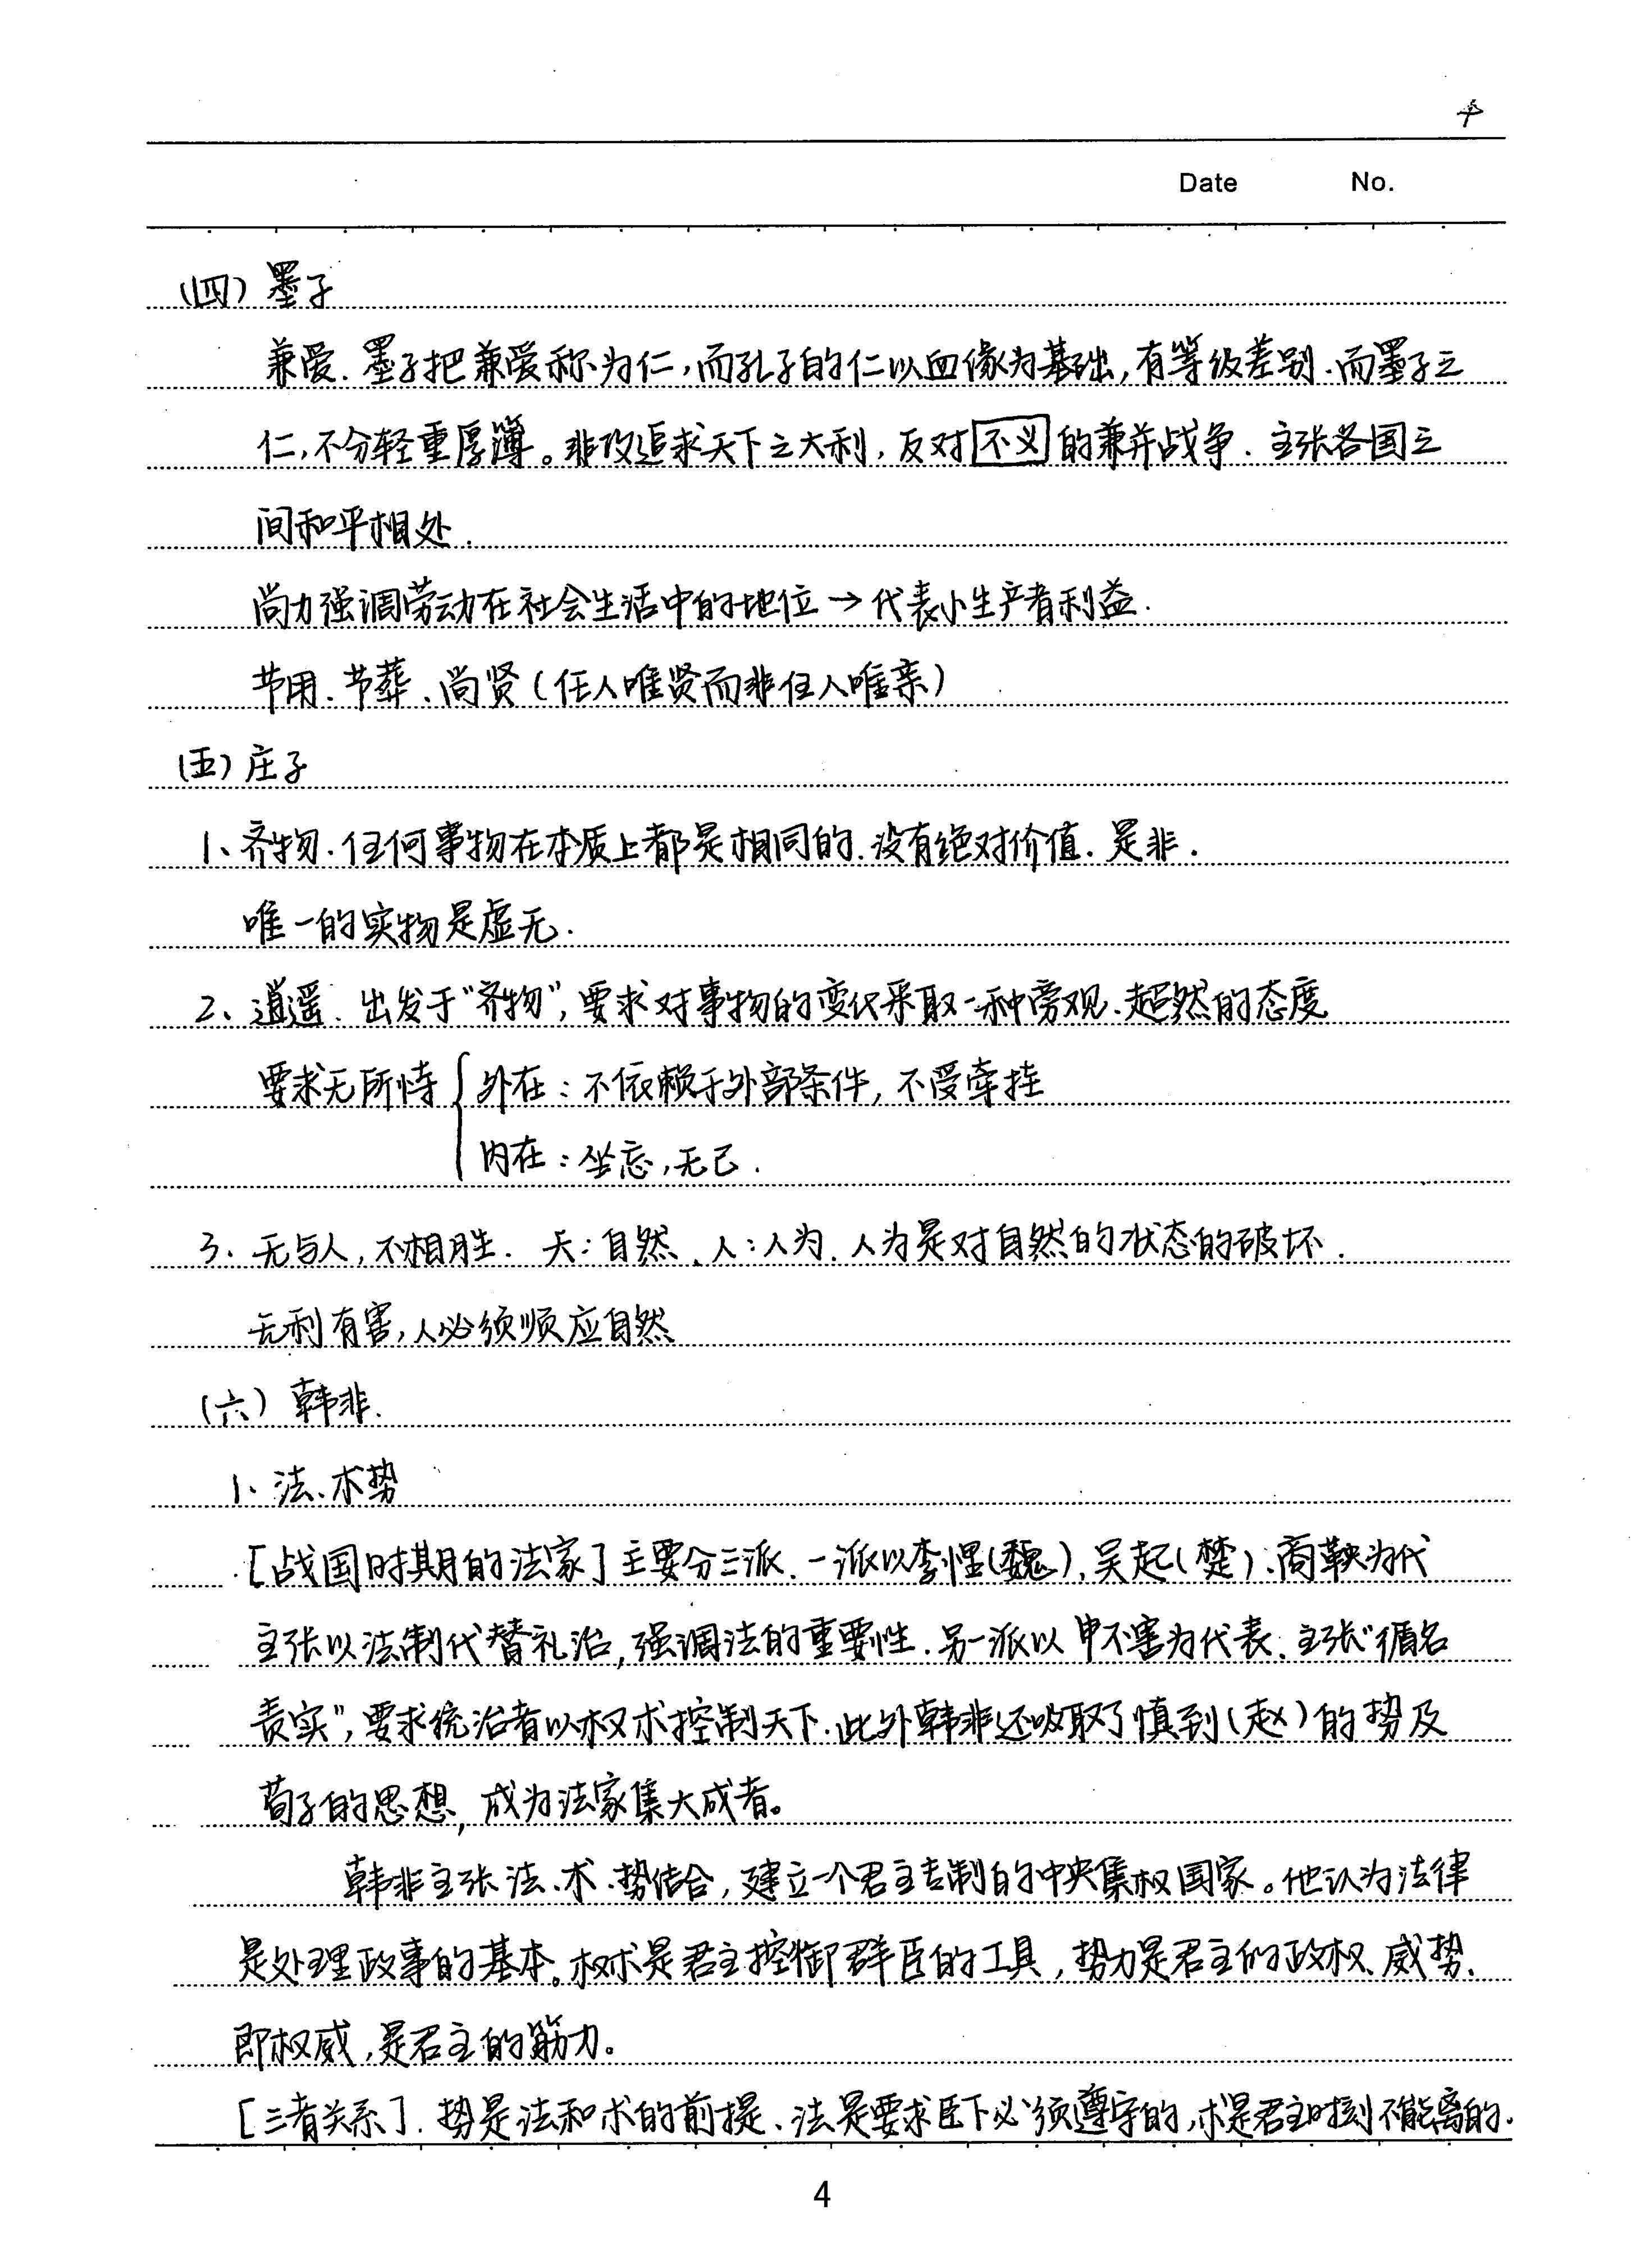 Date No.
(四) 墨子
兼爱. 墨子把兼爱称为仁,而孔子的仁以血缘为基础,有等级差别.而墨子之
仁,不分轻重厚薄。非攻追求天下之大利,反对不义的兼并战争. 主张各国之
间和平相处.
尚力强调劳动在社会生活中的地位→代表小生产者利益.
节用、节葬、尚贤(任人唯贤而非任人唯亲)
(五) 庄子
1、齐物.任何事物在本质上都是相同的.没有绝对价值.是非.
唯一的实物是虚无.
2、逍遥. 出发于“齐物”,要求对事物的变化采取一种旁观、超然的态度
要求无所恃 { 外在:不依赖于外部条件,不受牵挂
内在:坐忘,无己.
3、无与人,不相胜. 天:自然、人:人为.人为是对自然的状态的破坏.
无利有害,人必须顺应自然
(六) 韩非.
1、法、术势
[战国时期的法家]主要分三派.一派以李悝(魏),吴起(楚)、商鞅为代
主张以法制代替礼治,强调法的重要性.另一派以申不害为代表.主张“循名
责实”,要求统治者以权术控制天下.此外韩非还吸取了慎到(赵)的势及
荀子的思想,成为法家集大成者。
韩非主张法、术、势结合,建立一个君主专制的中央集权国家。他认为法律
是处理政事的基本。权术是君主控御群臣的工具,势力是君主的政权、威势、
即权威,是君主的筋力。
[三者关系].势是法和术的前提、法是要求臣下必须遵守的,术是君主时刻不能离的.
4